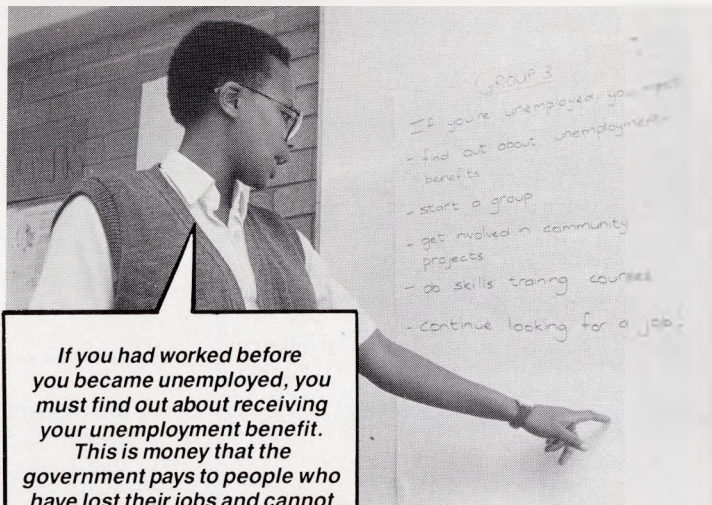 GROUP 3
If you're unemployed, you must
- find out about unemployment
benefits
- start a group
- get nvolved n community
projects
- do skills training courses
- continue looking for a job!
If you had worked before
you became unemployed, you
must find out about receiving
your unemployment benefit.
This is money that the
government pays to people who
have lost their jobs and cannot